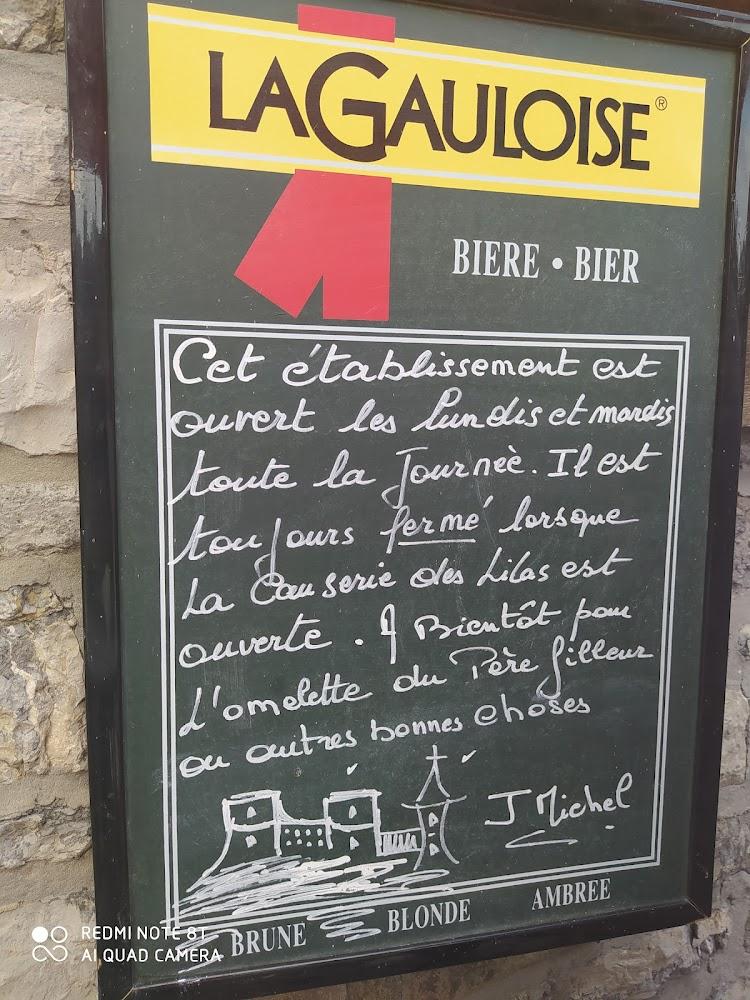 LAGAULOISE®
BIERE • BIER
Cet établissement est
ouvert les lundis et mardis
toute la Journèe. Il est
toujours fermé lorsque
La Causerie des Lilas est
ouverte. A Bientôt pour
L'omelette du Père Filleur
ou autres bonnes choses
J Michel
BRUNE BLONDE AMBREE
REDMI NOTE 8T
AI QUAD CAMERA